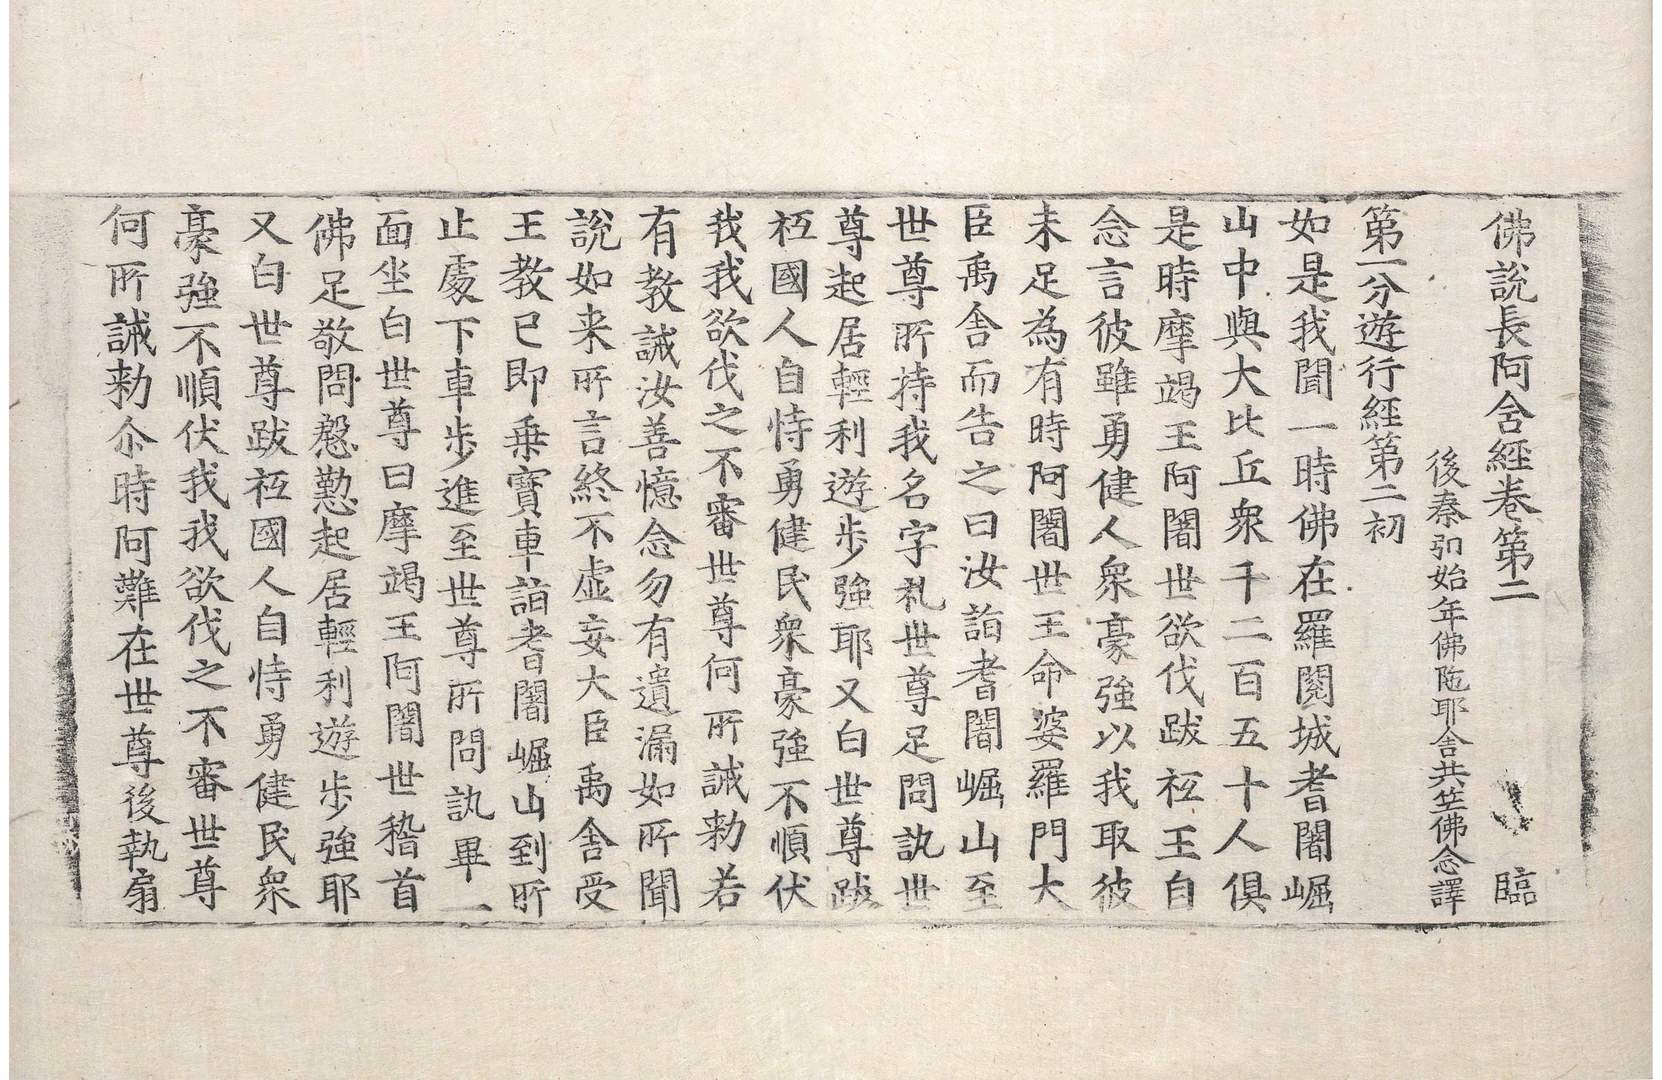 佛說長阿含經卷第二 臨
後秦弘始年佛陁耶舍共竺佛念譯
第一分遊行經第二初
如是我聞一時佛在羅閱城耆闍崛
山中與大比丘衆千二百五十人俱
是時摩竭王阿闍世欲伐跋祇王自
念言彼雖勇健人衆豪強以我取彼
未足為有時阿闍世王命婆羅門大
臣禹舍而告之曰汝詣耆闍崛山至
世尊所持我名字礼世尊足問訊世
尊起居輕利遊步強耶又白世尊跋
祇國人自恃勇健民衆豪強不順伏
我我欲伐之不審世尊何所誡勑若
有教誡汝善憶念勿有遺漏如所聞
說如来所言終不虛妄大臣禹舍受
王教已即乗寶車詣耆闍崛山到所
止處下車步進至世尊所問訊畢一
面坐白世尊曰摩竭王阿闍世稽首
佛足敬問慇懃起居輕利遊步強耶
又白世尊跋祇國人自恃勇健民衆
豪強不順伏我我欲伐之不審世尊
何所誡勑尒時阿難在世尊後執扇